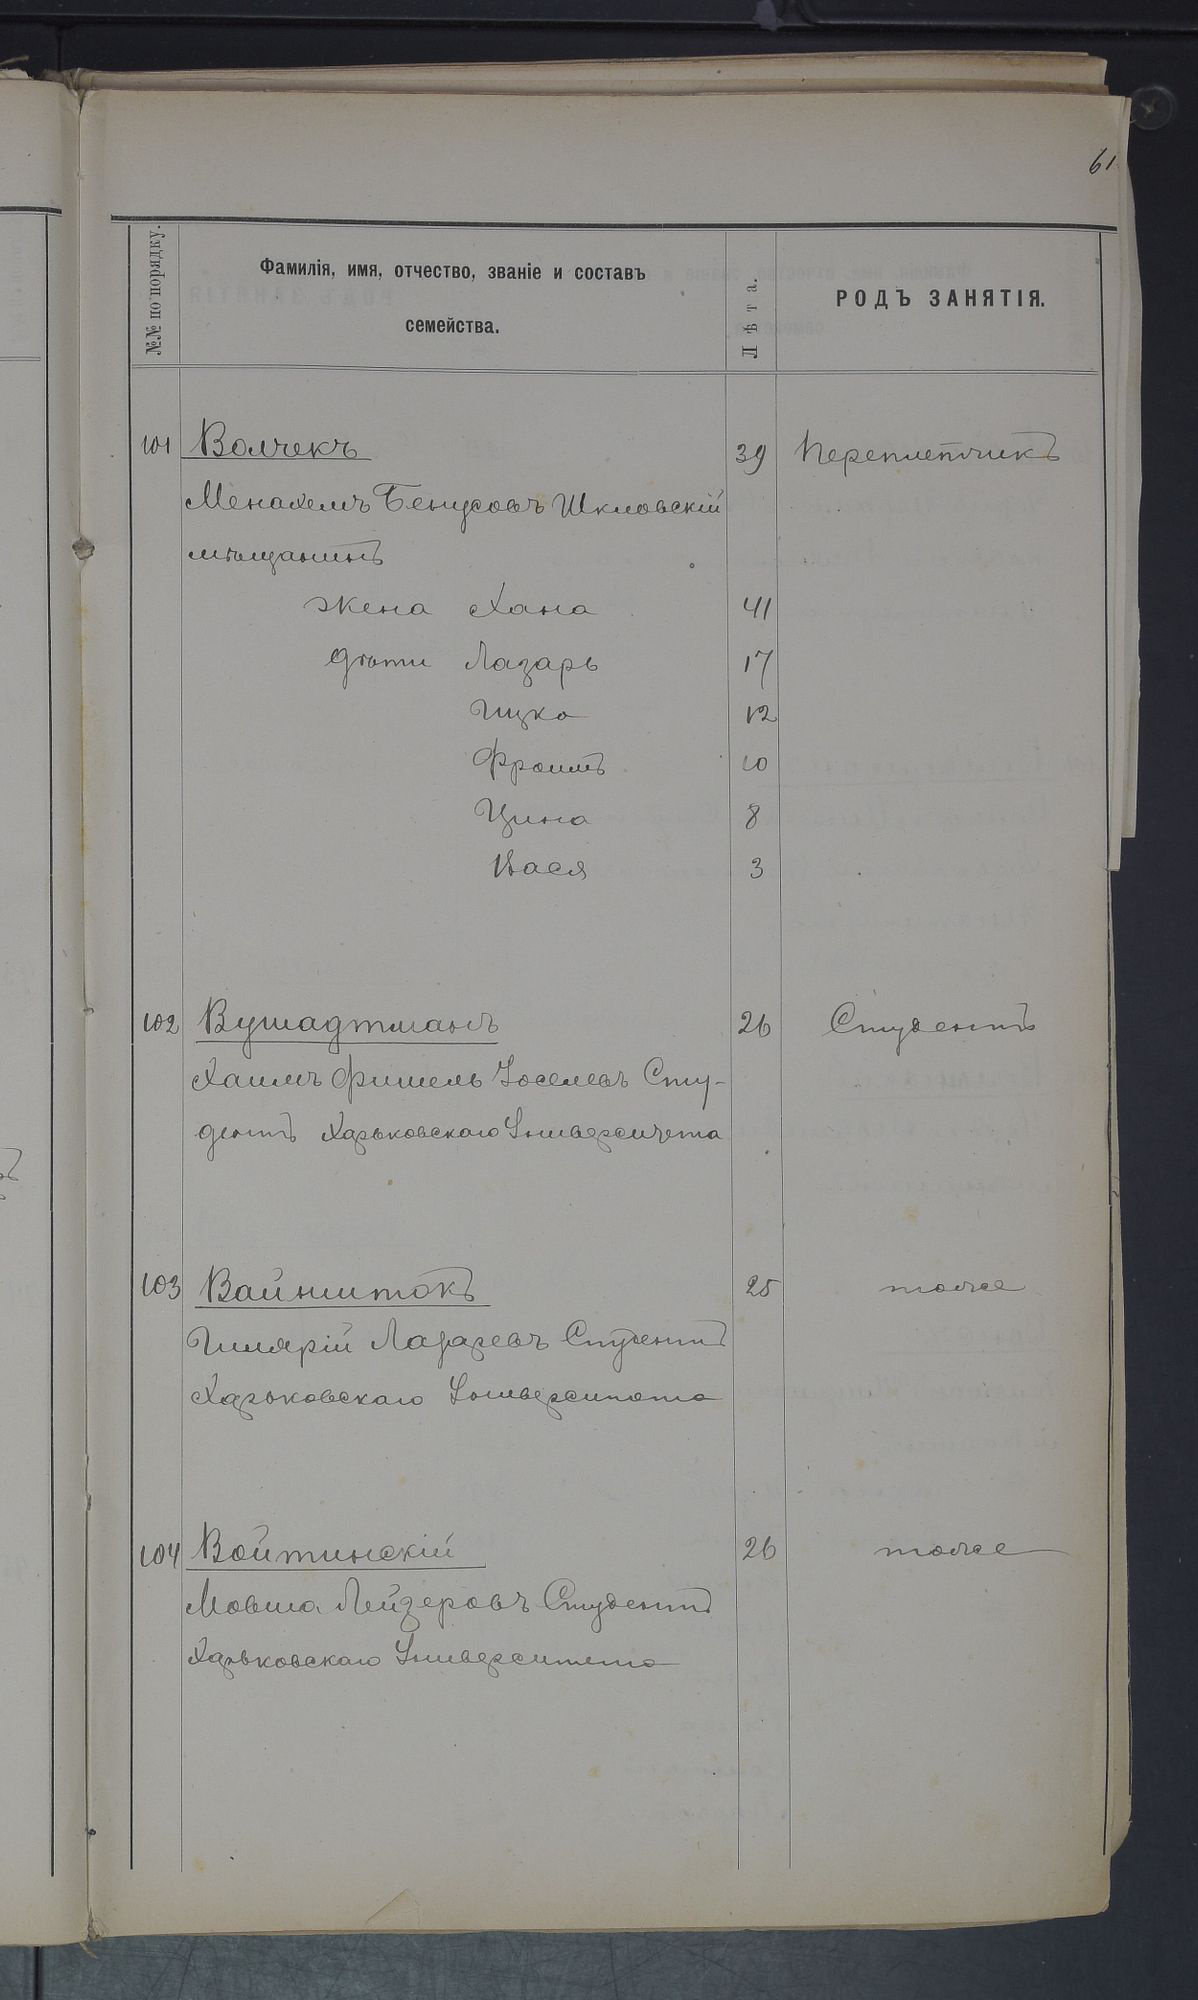 61
№№ по порядку.
Фамилія, имя, отчество, званіе и составъ
семейства.
Лѣта.
РОДЪ ЗАНЯТІЯ.
101 Волчекъ 39 Переплетчикъ
Менахемъ Бенусовъ Шкловскій
мѣщанинъ
жена Хана 41
дѣти Лазарь 17
Ицко 12
Фроимъ 10
Цина 8
Хася 3
102 Вушадтманъ 26 Студентъ
Хаимъ Фишель Іоселевъ Сту-
дентъ Харьковскаго Университета
103 Вайнштокъ 25 тоже
Иллярій Лазаревъ Студентъ
Харьковскаго Университета
104 Войтинскій 26 тоже
Мовша Лейзеровъ Студентъ
Харьковскаго Университета